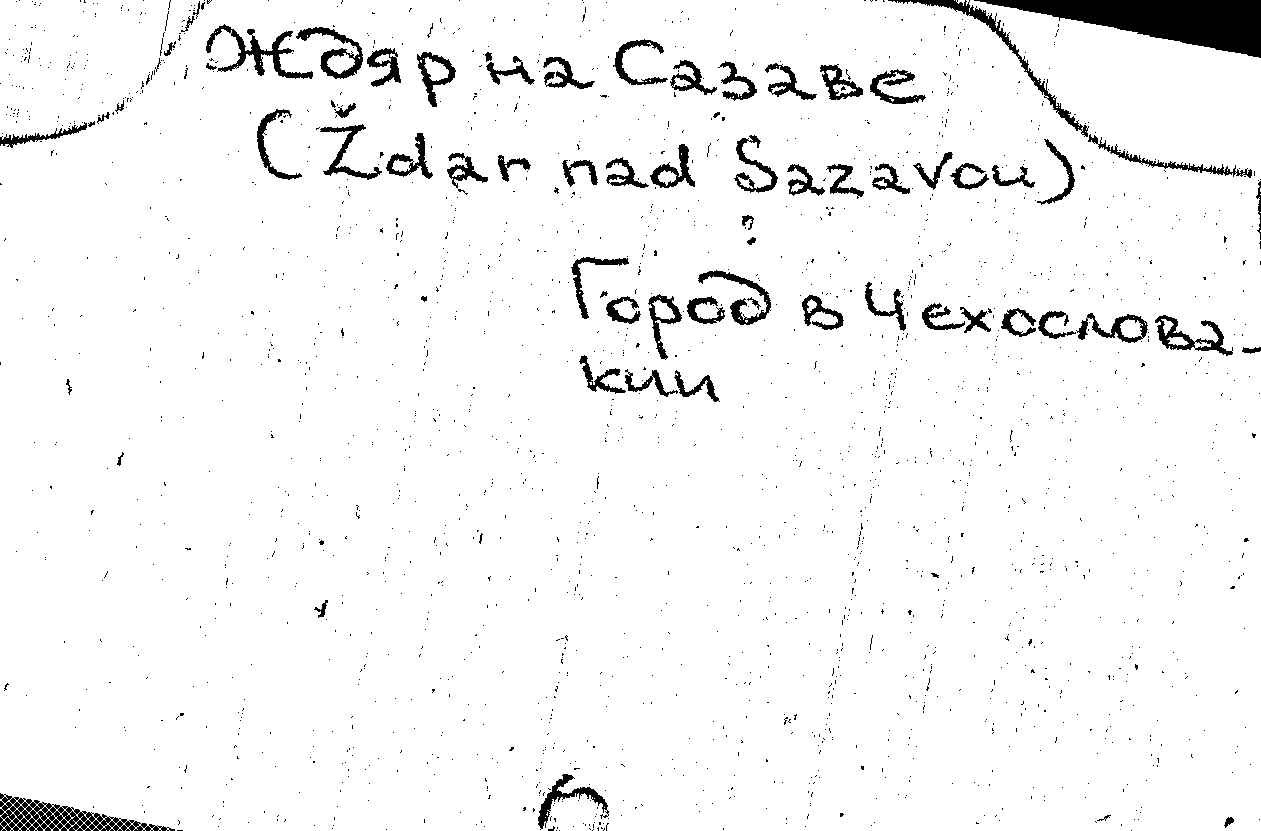 Ждяр на Сазаве
(Ždar nad Sazavou)
Город в Чехослова-
кии